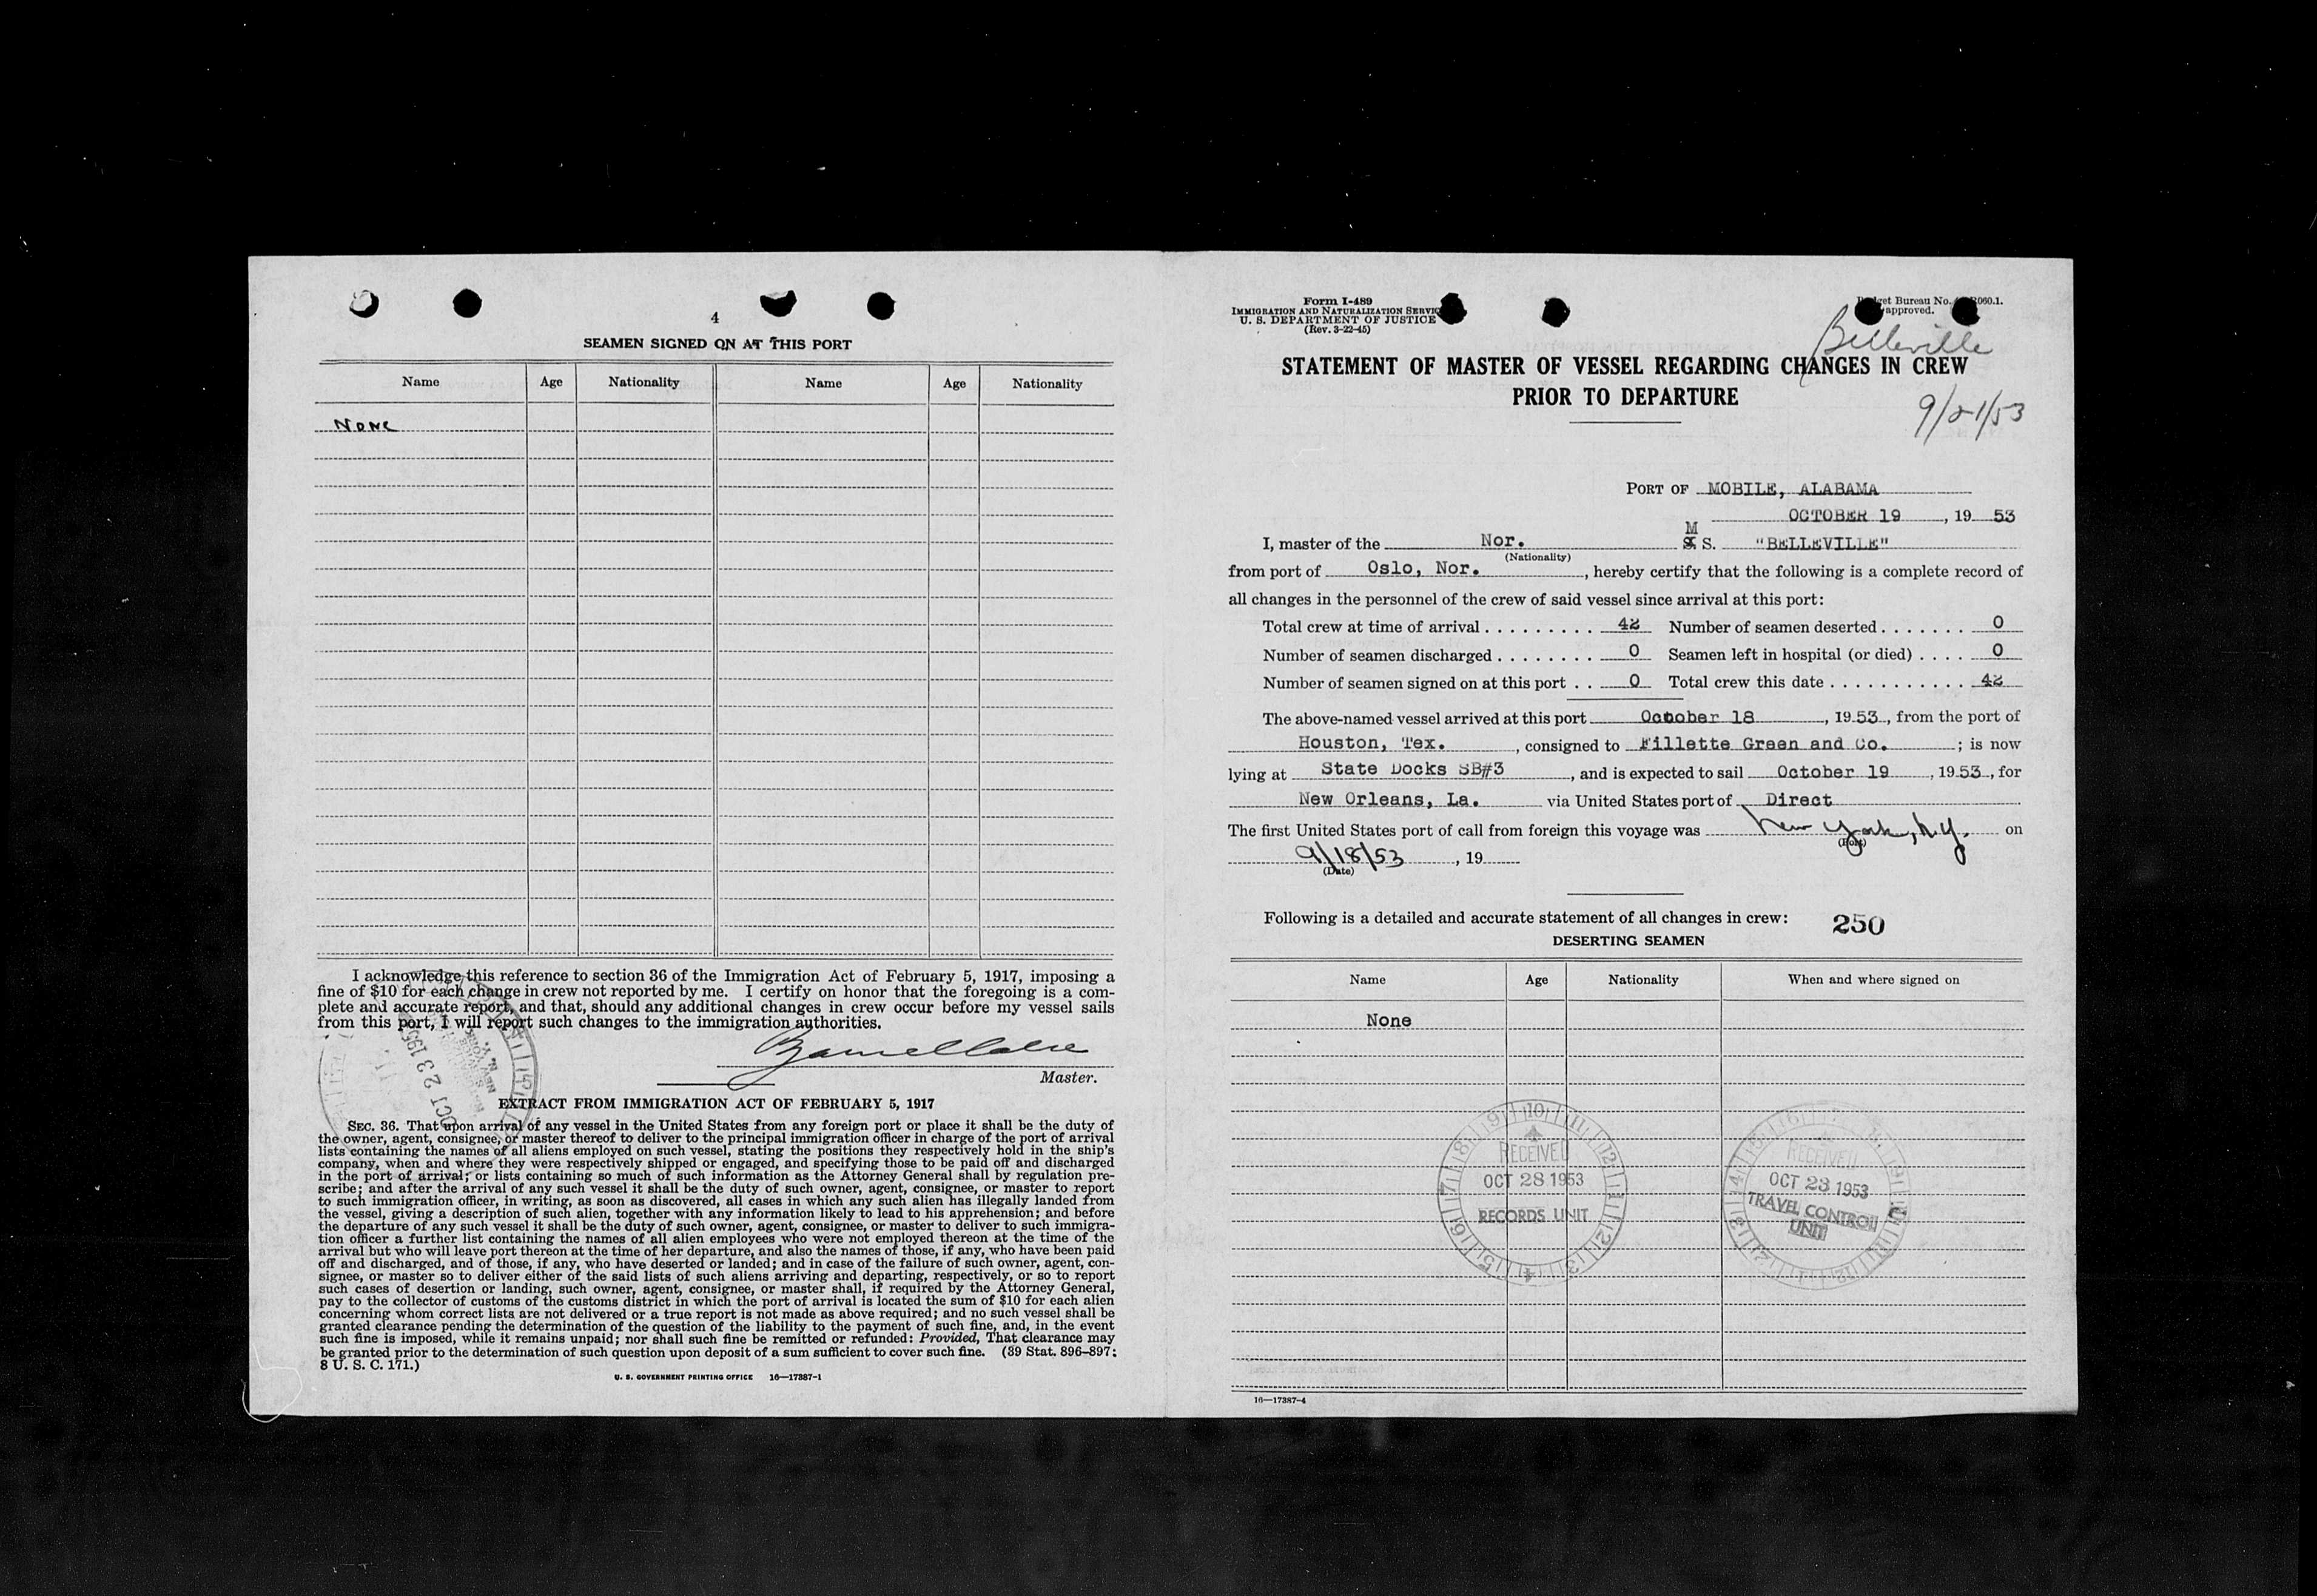 4
SEAMEN SIGNED ON AT THIS PORT
Name Age Nationality Name Age Nationality
None
I acknowledge this reference to section 36 of the Immigration Act of February 5, 1917, imposing a
fine of $10 for each change in crew not reported by me. I certify on honor that the foregoing is a com-
plete and accurate report, and that, should any additional changes in crew occur before my vessel sails
from this port, I will report such changes to the immigration authorities.
Master.
OCT 23 195
NEW YORK
N. Y.
EXTRACT FROM IMMIGRATION ACT OF FEBRUARY 5, 1917
SEC. 36. That upon arrival of any vessel in the United States from any foreign port or place it shall be the duty of
the owner, agent, consignee, or master thereof to deliver to the principal immigration officer in charge of the port of arrival
lists containing the names of all aliens employed on such vessel, stating the positions they respectively hold in the ship's
company, when and where they were respectively shipped or engaged, and specifying those to be paid off and discharged
in the port of arrival; or lists containing so much of such information as the Attorney General shall by regulation pre-
scribe; and after the arrival of any such vessel it shall be the duty of such owner, agent, consignee, or master to report
to such immigration officer, in writing, as soon as discovered, all cases in which any such alien has illegally landed from
the vessel, giving a description of such alien, together with any information likely to lead to his apprehension; and before
the departure of any such vessel it shall be the duty of such owner, agent, consignee, or master to deliver to such immigra-
tion officer a further list containing the names of all alien employees who were not employed thereon at the time of the
arrival but who will leave port thereon at the time of her departure, and also the names of those, if any, who have been paid
off and discharged, and of those, if any, who have deserted or landed; and in case of the failure of such owner, agent, con-
signee, or master so to deliver either of the said lists of such aliens arriving and departing, respectively, or so to report
such cases of desertion or landing, such owner, agent, consignee, or master shall, if required by the Attorney General,
pay to the collector of customs of the customs district in which the port of arrival is located the sum of $10 for each alien
concerning whom correct lists are not delivered or a true report is not made as above required; and no such vessel shall be
granted clearance pending the determination of the question of the liability to the payment of such fine, and, in the event
such fine is imposed, while it remains unpaid; nor shall such fine be remitted or refunded: Provided, That clearance may
be granted prior to the determination of such question upon deposit of a sum sufficient to cover such fine. (39 Stat. 896–897;
8 U. S. C. 171.)
U. S. GOVERNMENT PRINTING OFFICE 16—17387-1
Form I-489
IMMIGRATION AND NATURALIZATION SERVIC
U. S. DEPARTMENT OF JUSTICE
(Rev. 3-22-45)
et Bureau No. 060.1.
approved.
Belleville
STATEMENT OF MASTER OF VESSEL REGARDING CHANGES IN CREW
PRIOR TO DEPARTURE
9/21/53
PORT OF MOBILE, ALABAMA
OCTOBER 19, 19 53
I, master of the Nor. M S. "BELLEVILLE"
(Nationality)
from port of Oslo, Nor., hereby certify that the following is a complete record of
all changes in the personnel of the crew of said vessel since arrival at this port:
Total crew at time of arrival . . . . . . . . . 42 Number of seamen deserted . . . . . . . 0
Number of seamen discharged . . . . . . . . 0 Seamen left in hospital (or died) . . . . 0
Number of seamen signed on at this port . . 0 Total crew this date . . . . . . . . . . . . 42
The above-named vessel arrived at this port October 18, 19 53, from the port of
Houston, Tex., consigned to Fillette Green and Co.; is now
lying at State Docks SB#3, and is expected to sail October 19, 19 53, for
New Orleans, La. via United States port of Direct
The first United States port of call from foreign this voyage was New York, N.Y. on
(Port)
9/18/53, 19
(Date)
Following is a detailed and accurate statement of all changes in crew: 250
DESERTING SEAMEN
Name Age Nationality When and where signed on
None
RECEIVED
OCT 28 1953
RECORDS UNIT
RECEIVED
OCT 23 1953
TRAVEL CONTROL
UNIT
16—17387-4